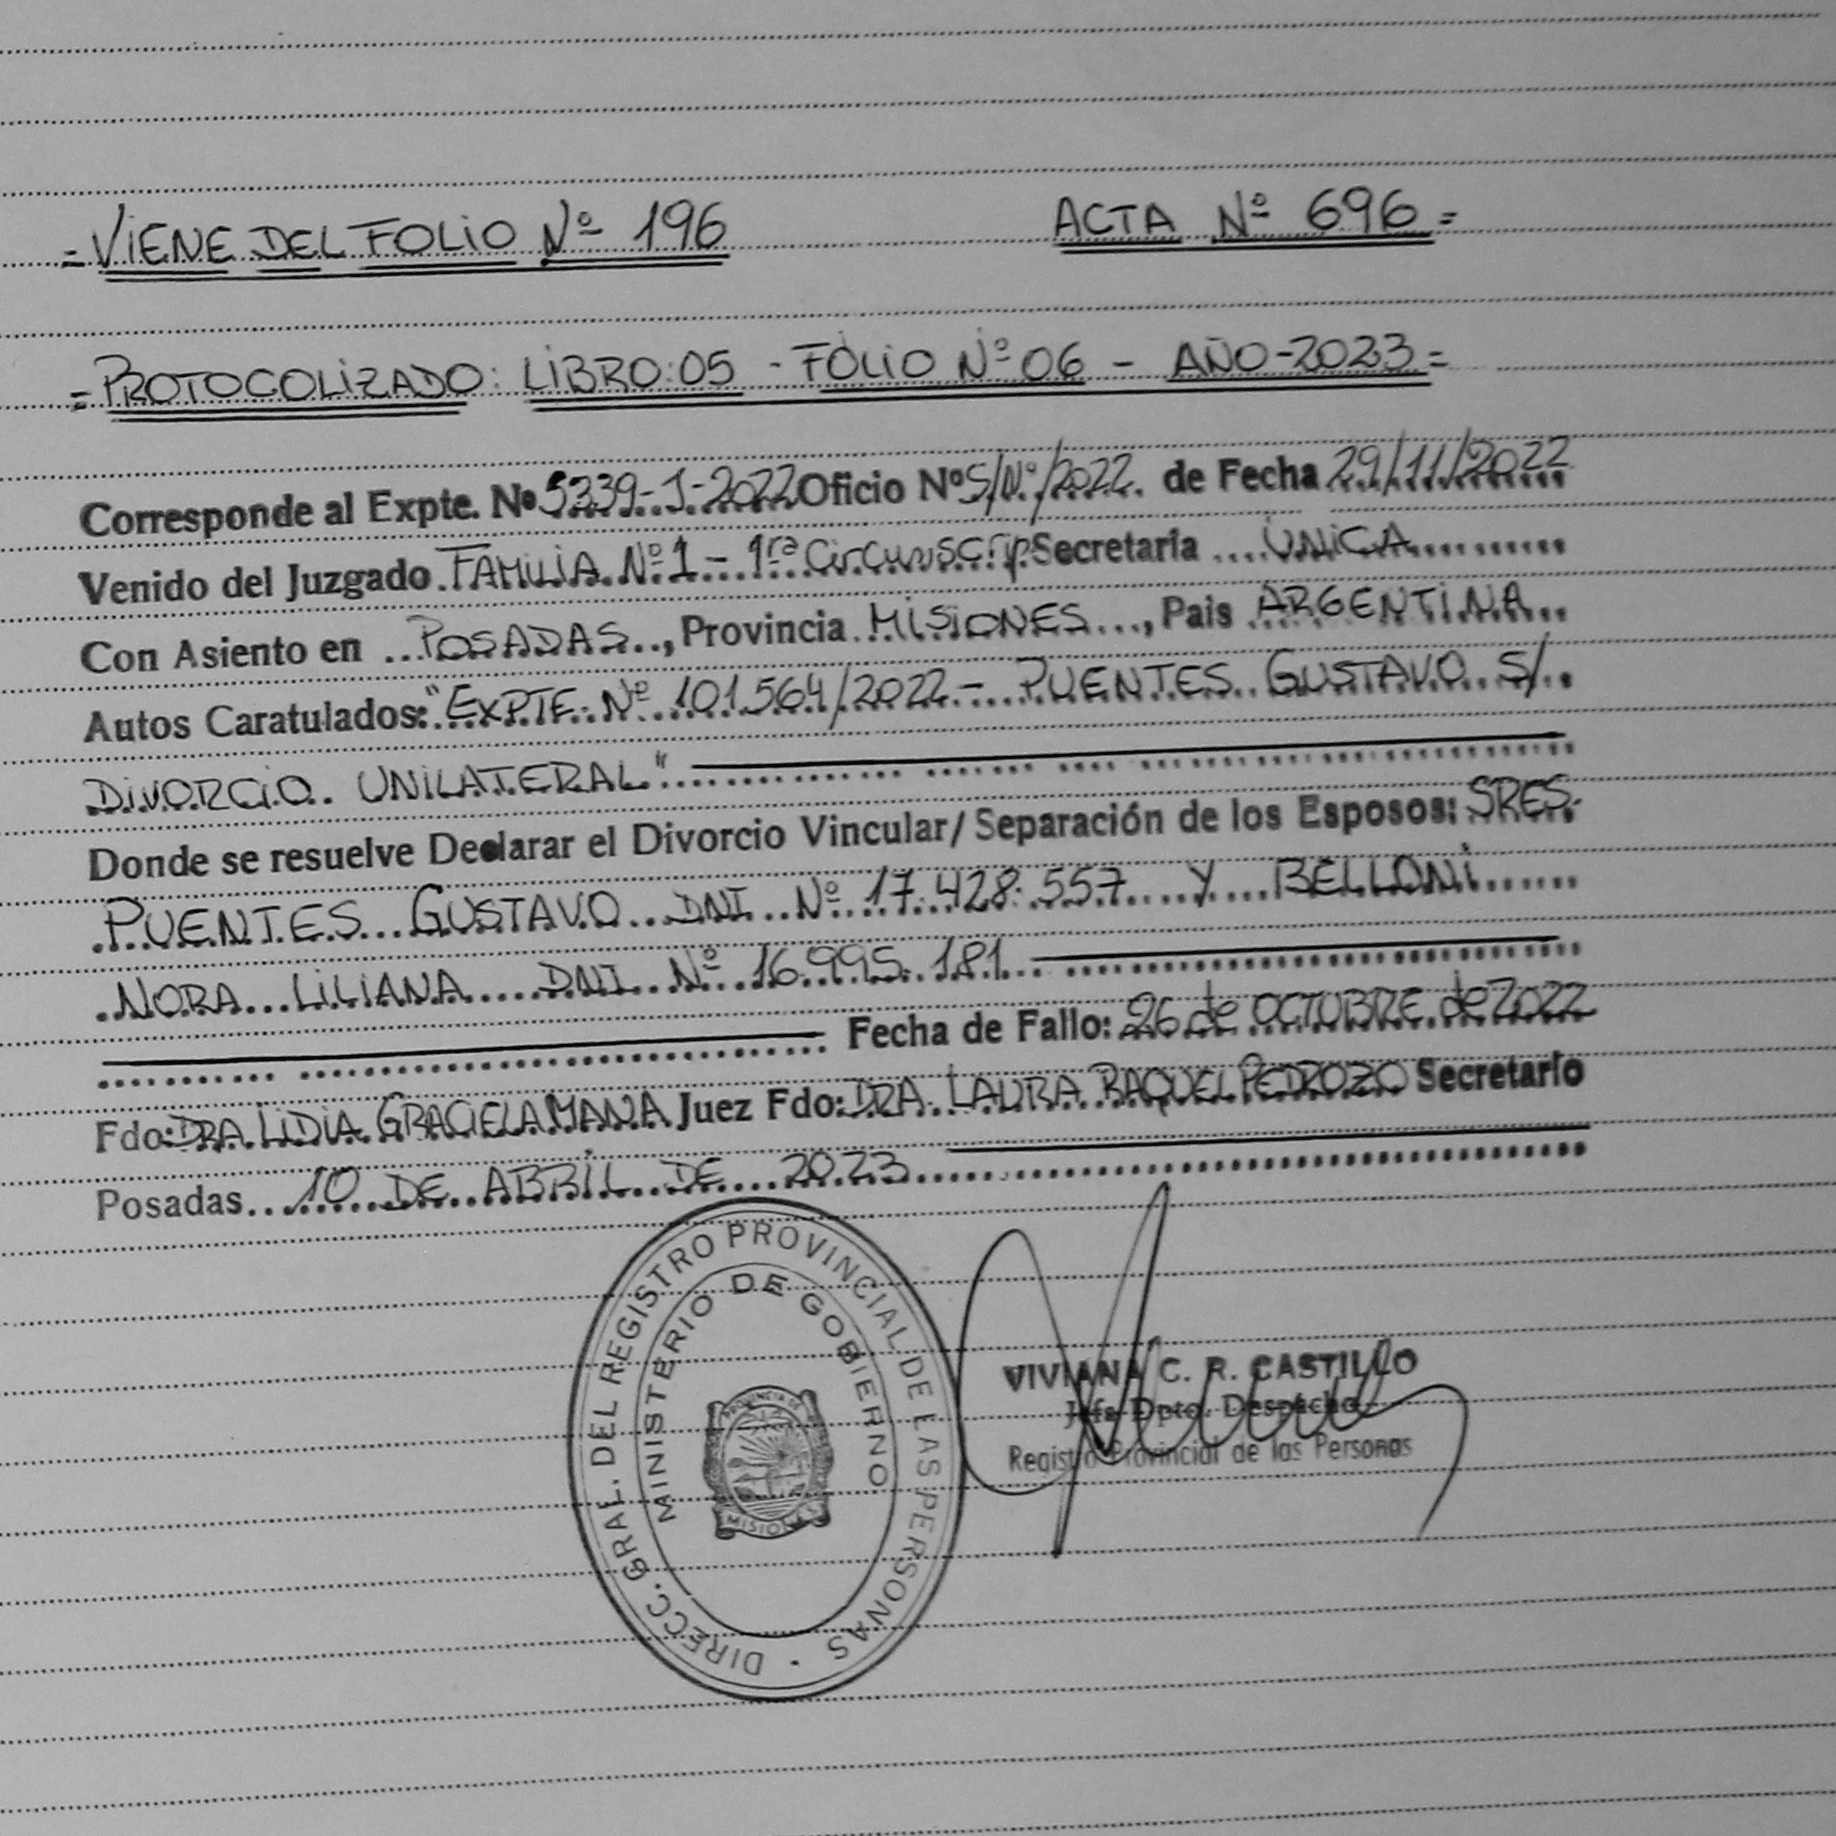 = VIENE DEL FOLIO Nº 196 ACTA Nº 696 =
= PROTOCOLIZADO: LIBRO: 05 - FOLIO Nº 06 - AÑO - 2023 =
Corresponde al Expte. Nº 5339-J-2022 Oficio Nº S/Nº/2022 de Fecha 29/11/2022
Venido del Juzgado FAMILIA Nº 1 - 1ra Circunscrip Secretaria ÚNICA
Con Asiento en POSADAS, Provincia MISIONES, Pais ARGENTINA
Autos Caratulados: "EXPTE. Nº 101.564/2022 - PUENTES GUSTAVO S/
DIVORCIO UNILATERAL"
Donde se resuelve Declarar el Divorcio Vincular/ Separación de los Esposos: SRES.
PUENTES GUSTAVO DNI Nº 17.428.557 Y BELLONI
NORA LILIANA DNI Nº 16.995.181
Fecha de Fallo: 26 de OCTUBRE de 2022
Fdo: DRA LIDIA GRACIELA MANA Juez Fdo: DRA. LAURA RAQUEL PEDROZO Secretario
Posadas 10 DE ABRIL DE 2023
DIRECC. GRAL. DEL REGISTRO PROVINCIAL DE LAS PERSONAS
MINISTERIO DE GOBIERNO
PROVINCIA DE
MISIONES
VIVIANA C. R. CASTILLO
Jefa Dpto. Despacho
Registro Provincial de las Personas